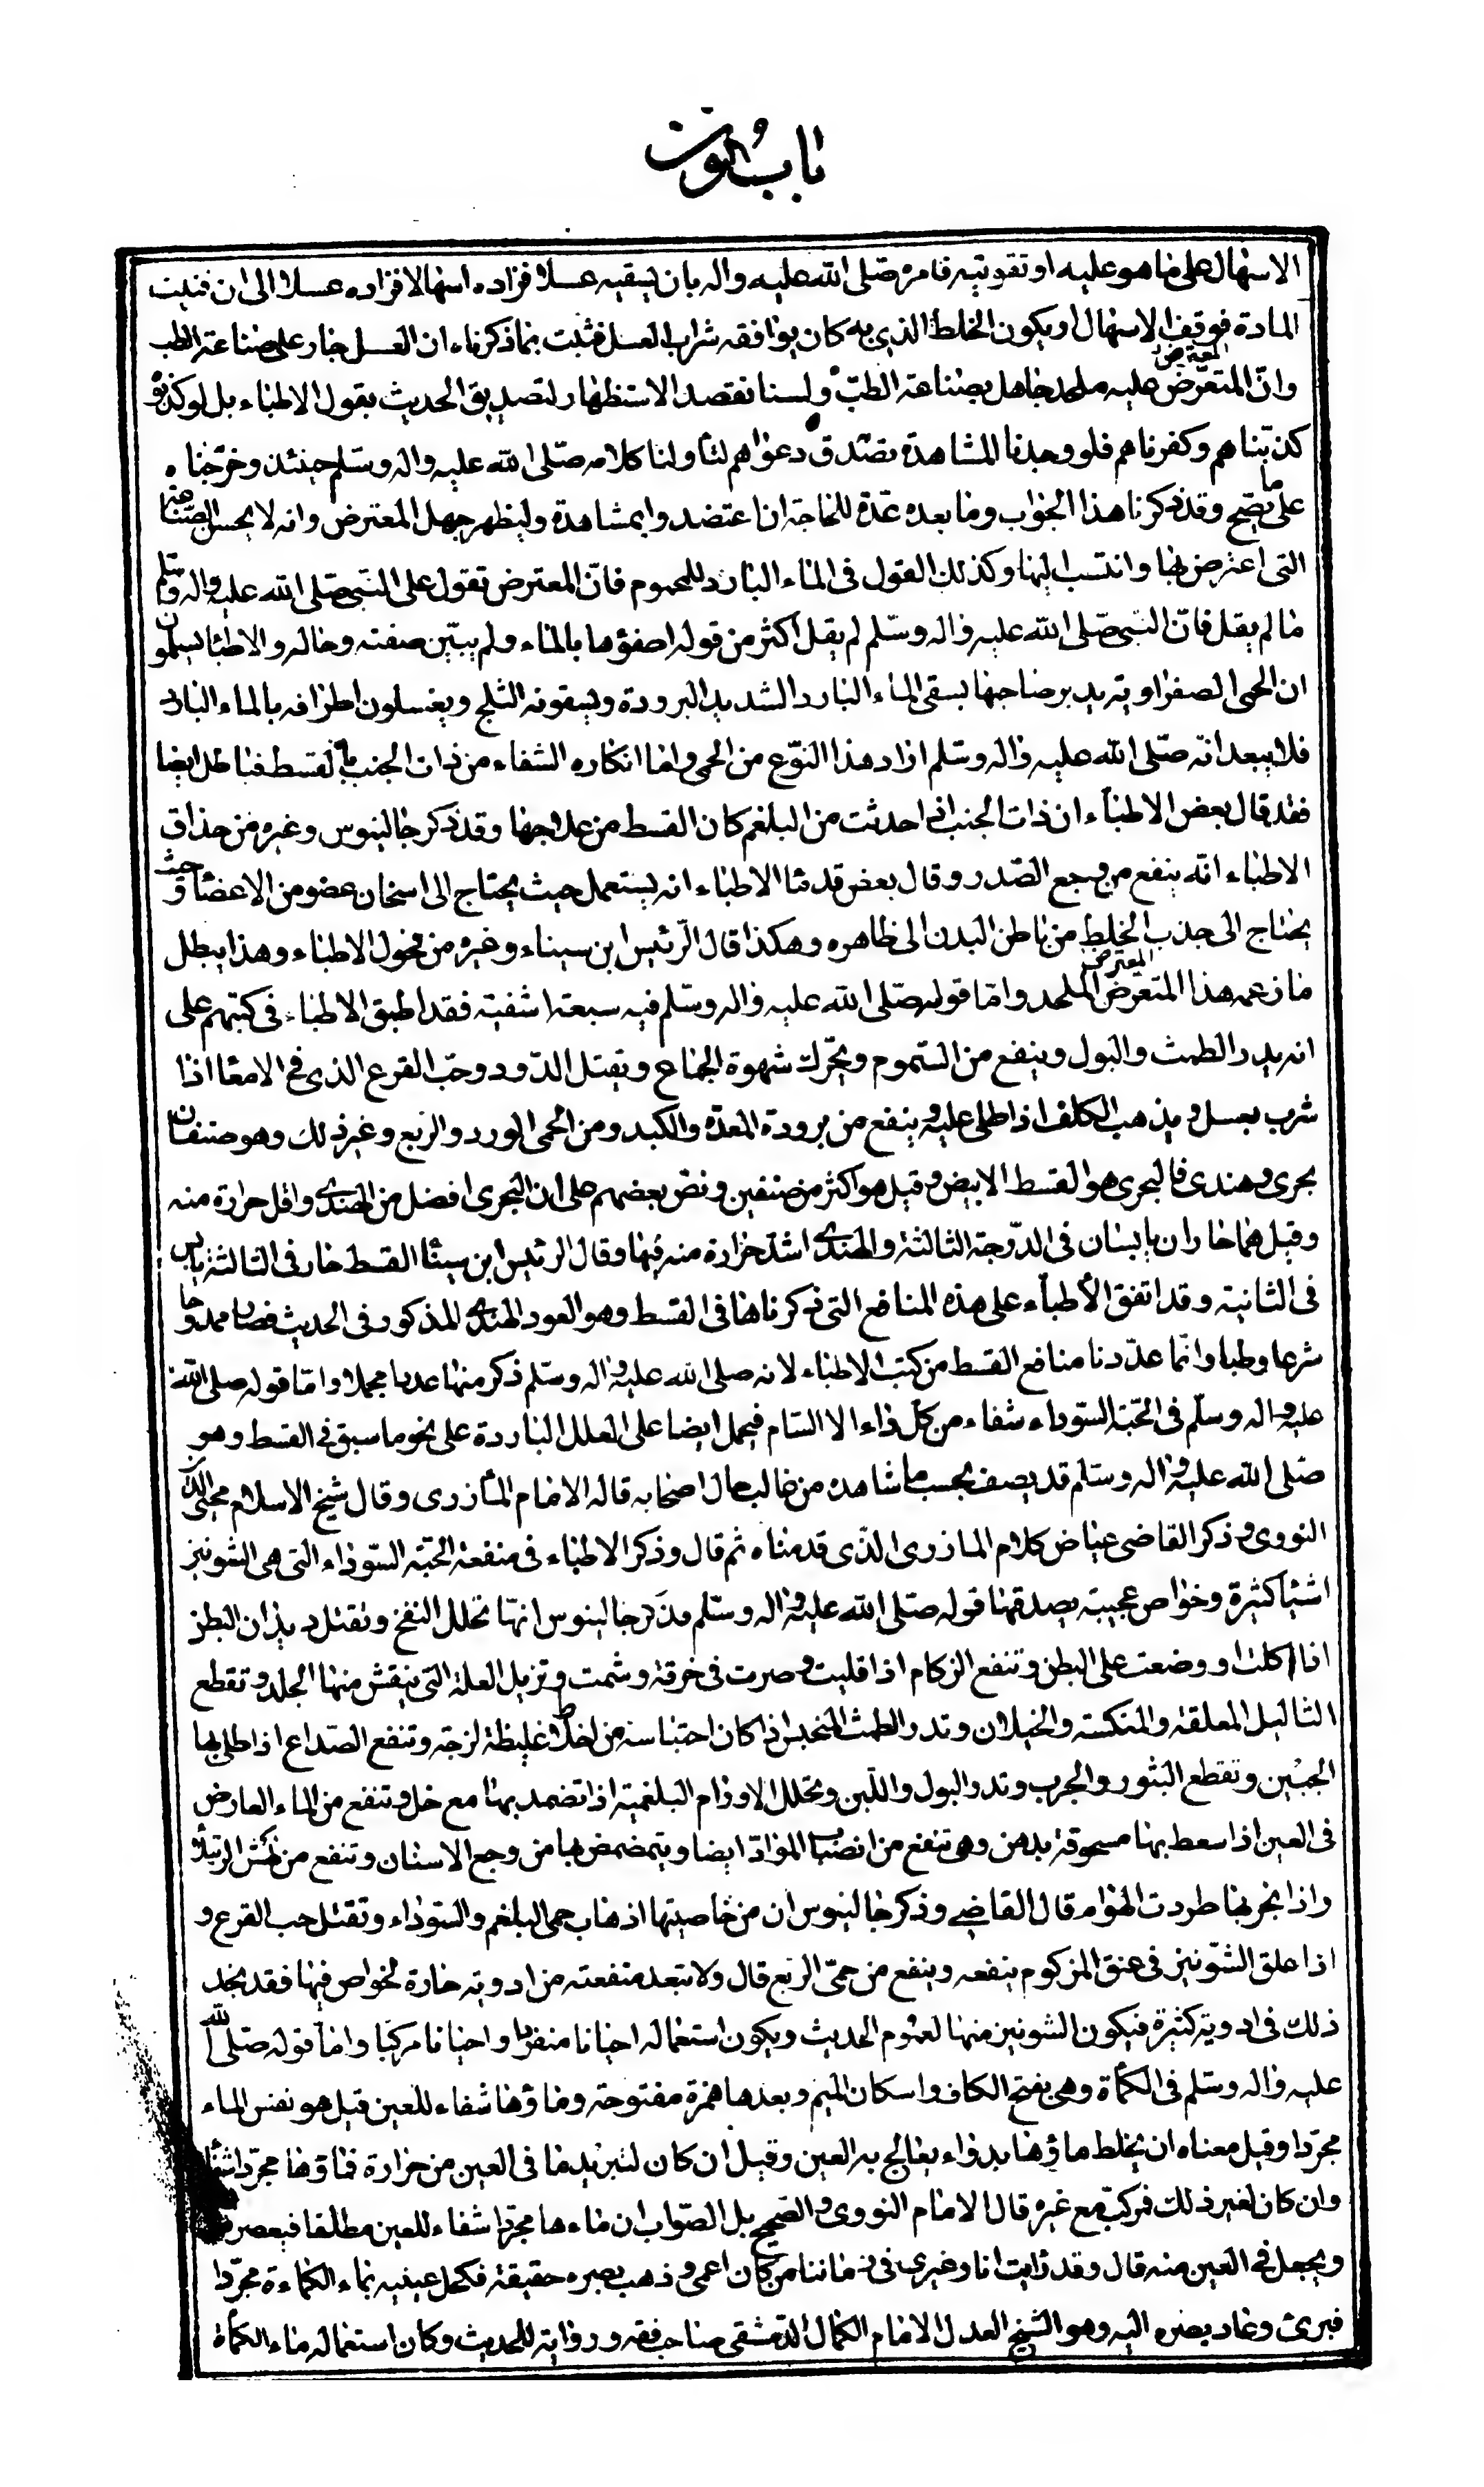 باب النون
الاسهال على ما هو عليه او تقويته فامره صلى الله عليه واله بان يسقيه عسلا فزاده اسهالا فزاده عسلا الى ان فنيت
المادة فوقف الاسهال او يكون الخلط الذى به كان يوافقه شراب العسل فثبت بما ذكرناه ان العسل جار على صناعة الطب
وان المتعرض المعترض عليه ملحد جاهل بصناعة الطب ولسنا نقصد الاستظهار لتصديق الحديث بقول الاطباء بل لو كذبوه
كذبناهم وكفرناهم فلو وجدنا المشاهدة تصدق دعواهم لتأولنا كلامه صلى الله عليه واله وسلم حينئذ وخرجناه
على ما يصح وقد ذكرنا هذا الجواب وما بعده عدة للحاجة ان اعتضدوا بمشاهدة وليظهر جهل المعترض وانه لا يحسن الصناعة
التى اعترض بها وانتسب اليها وكذلك القول فى الماء البارد للمحموم فان المعترض تقول على النبى صلى الله عليه واله وسلم
ما لم يقل فان النبى صلى الله عليه واله وسلم لم يقل اكثر من قوله اطفؤها بالماء ولم يبين صفته وحاله والاطبا يسلمون
ان الحمى الصفراوية يدبر صاحبها بسقى الماء البارد الشديد البرودة ويسقونه الثلج ويغسلون اطرافه بالماء البارد
فلا يبعد انه صلى الله عليه واله وسلم اراد هذا النوع من الحمى واما انكاره الشفاء من ذات الجنب بالقسط فباطل ايضا
فقد قال بعض الاطباء ان ذات الجنب اذا حدثت من البلغم كان القسط من علاجها وقد ذكر جالينوس وغيره من حذاق
الاطباء انه ينفع من وجع الصدر وقال بعض قدما الاطباء انه يستعمل حيث يحتاج الى اسخان عضو من الاعضا وحيث
يحتاج الى جذب الخلط من باطن البدن الى ظاهره وهكذا قال الرئيس ابن سيناء وغيره من فحول الاطباء وهذا يبطل
ما زعمه هذا المتعرض المعترض الملحد واما قوله صلى الله عليه واله وسلم فيه سبعة اشفية فقد اطبق الاطباء فى كتبهم على
انه يدر الطمث والبول وينفع من السموم ويحرك شهوة الجماع ويقتل الدود وحب القرع الذى فى الامعا اذا
شرب بعسل ويذهب الكلف اذا طلى عليه وينفع من برودة المعدة والكبد ومن الحمى الورد والربع وغير ذلك وهو صنفان
بحرى وهندى فالبحرى هو القسط الابيض وقيل هو اكثر من صنفين ونص بعضهم على ان البحرى افضل من الهندى واقل حرارة منه
وقيل هما حاران يابسان فى الدرجة الثالثة والهندى اشد حرارة منه فيها وقال الرئيس ابن سينا القسط حار فى الثالثة يابس
فى الثانية وقد اتفق الأطباء على هذه المنافع التى ذكرناها فى القسط وهو العود الهندى المذكور فى الحديث فصار ممدوحا
شرعا وطبا وانما عددنا منافع القسط من كتب الاطباء لانه صلى الله عليه واله وسلم ذكر منها عددا مجملا واما قوله صلى الله
عليه واله وسلم فى الحبة السوداء شفاء من كل داء الا السام فيحمل ايضا على العلل الباردة على نحو ما سبق فى القسط وهو
صلى الله عليه واله وسلم قد يصف بحسب ما شاهده من غالب حال اصحابه قاله الامام المأزرى وقال شيخ الاسلام محيى الدين
النووى وذكر القاضى عياض كلام المازرى الذى قدمناه ثم قال وذكر الاطباء فى منفعة الحبة السوداء التى هى الشونيز
اشيا كثيرة وخواص عجيبة يصدقها قوله صلى الله عليه واله وسلم فذكر جالينوس انها تحلل النفخ وتقتل ديدان البطن
اذا اكلت او وضعت على البطن وتنفع الزكام اذا قليت وصرت فى خرقة وشمت وتزيل العلة التى ينقشر منها الجلد وتقطع
الثاليل المعلقة والمنكسة والخيلان وتدر الطمث المنحبس اذا كان احتباسه من اخلاط غليظة لزجة وتنفع الصداع اذا طلى بها
الجبين وتقطع البثور والجرب وتدر البول واللبن وتحلل الاورام البلغمية اذا تضمد بها مع خل وتنفع من الماء العارض
فى العين اذا سعط بها مسحوقة بدهن وهى تنفع من انصباب المواد ايضا ويتمضمض بها من وجع الاسنان وتنفع من نهش الرتيلا
واذا بخر بها طردت الهوام قال القاضى وذكر جالينوس ان من خاصيتها اذهاب حمى البلغم والسوداء وتقتل حب القرع و
اذا علق الشونيز فى عنق المزكوم ينفعه وينفع من حمى الربع قال ولا تبعد منفعته من ادوية حارة لخواص فيها فقد نجد
ذلك فى ادوية كثيرة فيكون الشونيز منها لعموم الحديث ويكون استعماله احيانا منفردا واحيانا مركبا واما قوله صلى الله
عليه واله وسلم فى الكمأة وهى بفتح الكاف واسكان الميم وبعدها همزة مفتوحة وماؤها شفاء للعين قيل هو نفس الماء
مجردا وقيل معناه ان يخلط ماؤها بدواء يعالج به العين وقيل ان كان لتبريد ما فى العين من حرارة فماؤها مجردا شفا
وان كان لغير ذلك فمركب مع غيره قال الامام النووى والصحيح بل الصواب ان ماءها مجردا شفاء للعين مطلقا فيعصر
ويجعل فى العين منه قال وقد رايت انا وغيرى فى زماننا من كان اعمى وذهب بصره حقيقة فكحل عينيه بماء الكماءة مجردا
فبرئ وعاد بصره اليه وهو الشيخ العدل الامام الكمال الدمشقى صاحب فقه ورواية للحديث وكان استعماله ماء الكمأة